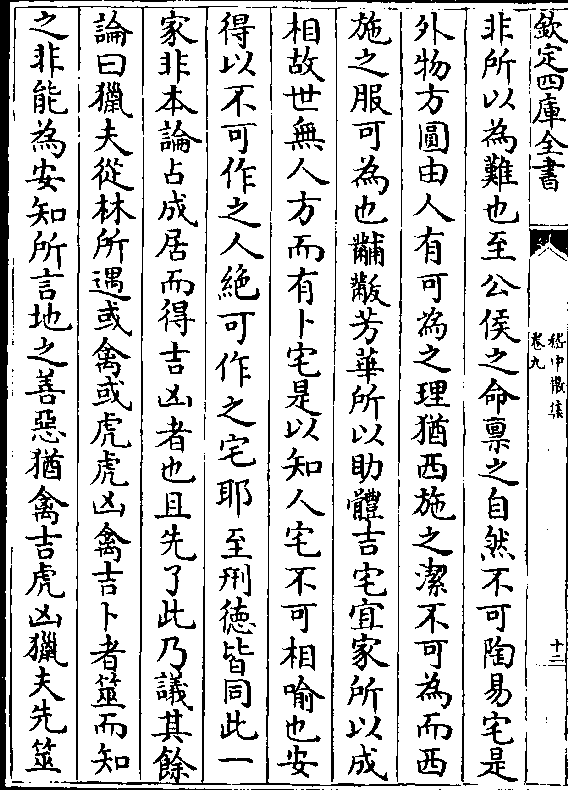 欽定四庫全書
嵇中散集
卷九
十二
非所以為難也至公侯之命禀之自然不可陶易宅是
外物方圓由人有可為之理猶西施之潔不可為而西
施之服可為也黼黻芳華所以助體吉宅宜家所以成
相故世無人方而有卜宅是以知人宅不可相喻也安
得以不可作之人絶可作之宅耶至刑德皆同此一
家非本論占成居而得吉凶者也且先了此乃議其餘
論曰獵夫從林所遇或禽或虎虎凶禽吉卜者筮而知
之非能為安知所言地之善惡猶禽吉虎凶獵夫先筮